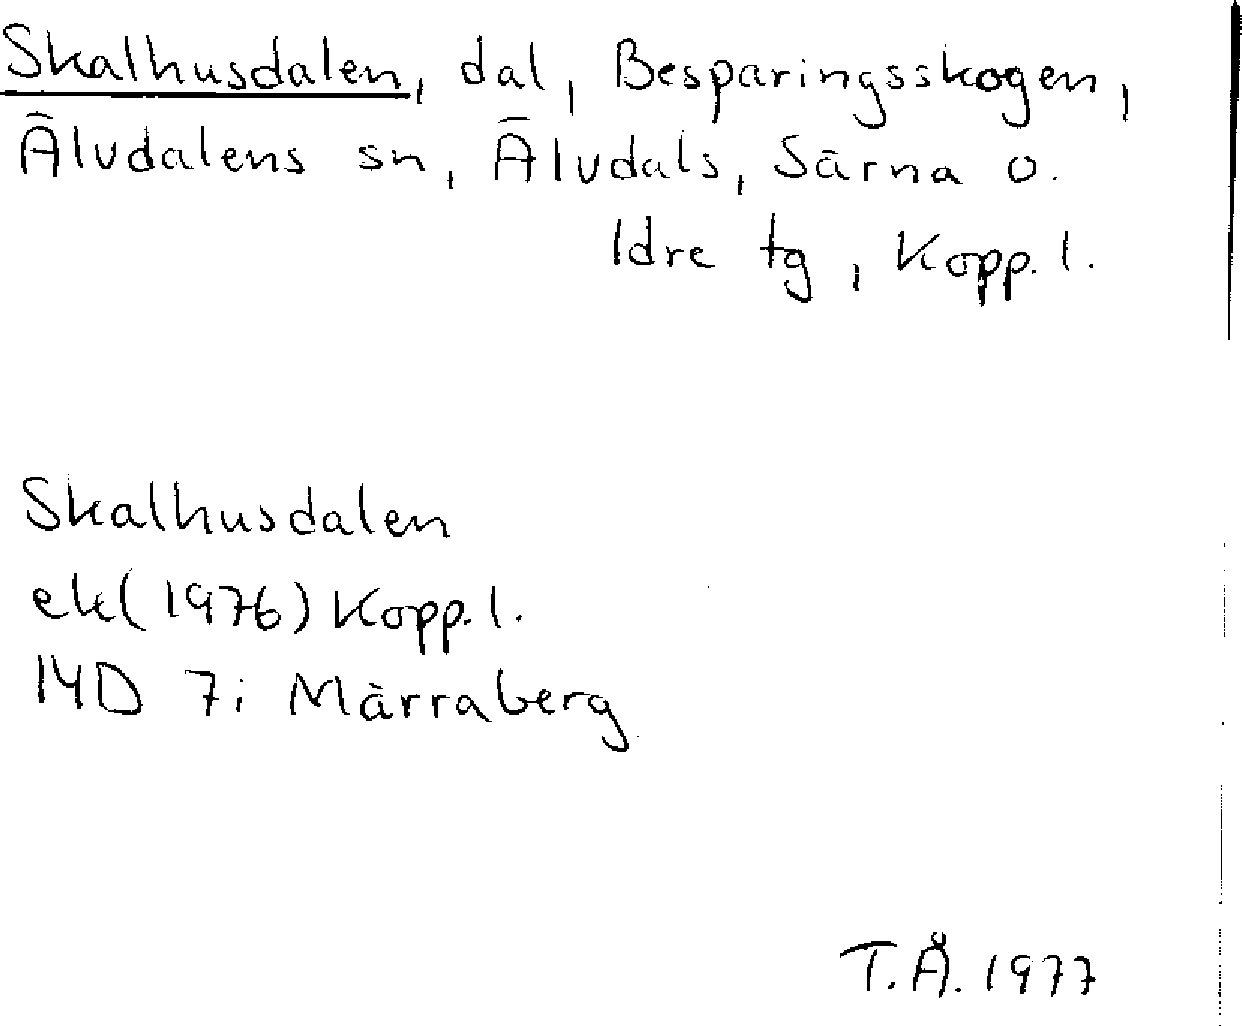 Skalhusdalen, dal, Besparingsskogen,
Älvdalens sn, Älvdals, Särna o.
Idre tg, Kopp. l.
Skalhusdalen
ek(1976) Kopp. l.
14D 7i Märraberg
T.Å. 1977